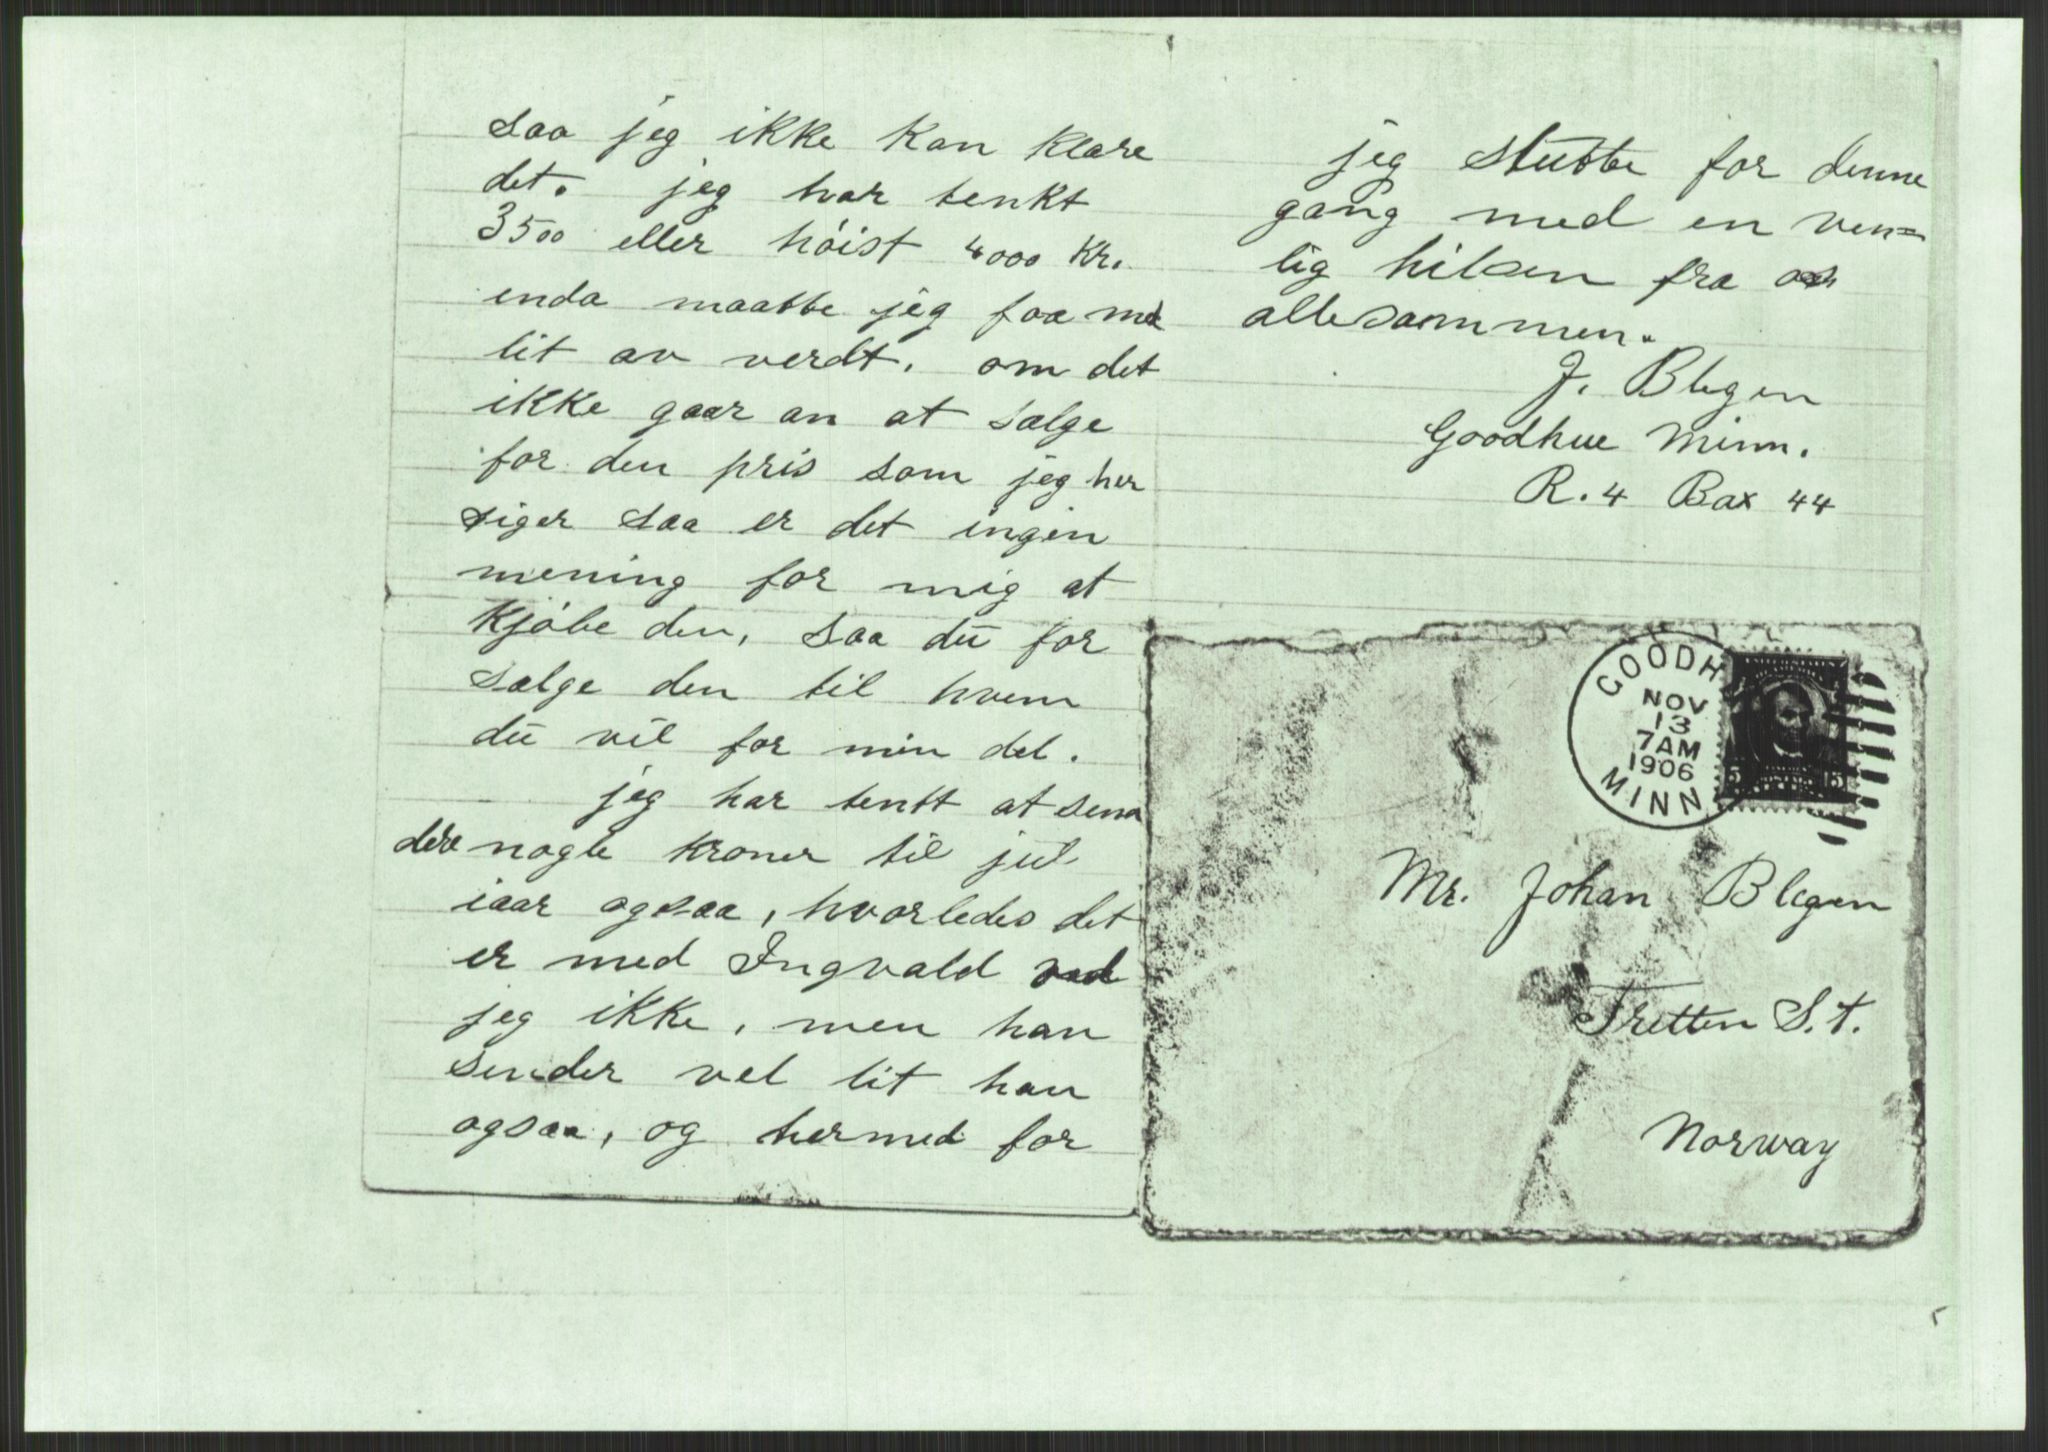 saa jeg ikke kan klare
det. jeg har tenkt
3500 eller höist 4000 kr.
enda maatte jeg faa med
lit av verdt. om det
ikke gaar an at sælge
for den pris som jeg her
siger saa er det ingen
mening for mig at
kjöbe den, saa du for
sælge den til hvem
du vil for min del.
jeg har tenkt at senn
dere nogle kroner til jul
iaar ogsaa, hvorledes det
er med Ingvald ved
jeg ikke, men han
sender vel lit han
ogsaa, og hermed for
jeg slutte for denne
gang med en ven=
lig hilsen fra os
allesammen.
J. Blegen
Goodhue Minn.
R. 4 Box 44
GOODH
NOV
13
7AM
1906
MINN
5 5
Mr. Johan Blegen
Tretten S.t.
Norway